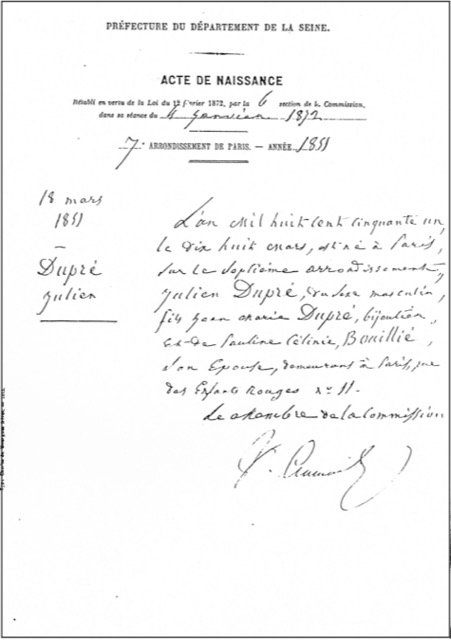 PRÉFECTURE DU DÉPARTEMENT DE LA SEINE.
ACTE DE NAISSANCE
Rétabli en vertu de la Loi du 12 février 1872, par la 6 section de la Commission,
dans sa séance du Janvier 1872
7e ARRONDISSEMENT DE PARIS. — ANNÉE 1851
18 mars
1851
—
Dupré
Julien
L'an Mil huit cent cinquante un,
le Dix huit Mars, est né à Paris,
sur le septième arrondissement,
Julien Dupré, du sexe masculin,
fils Jean Marie Dupré, bijoutier,
et de Pauline Célinie, Bouillié,
son Epouse, demeurant à Paris, rue
des Enfants Rouges No 11.
Le Membre de la Commission